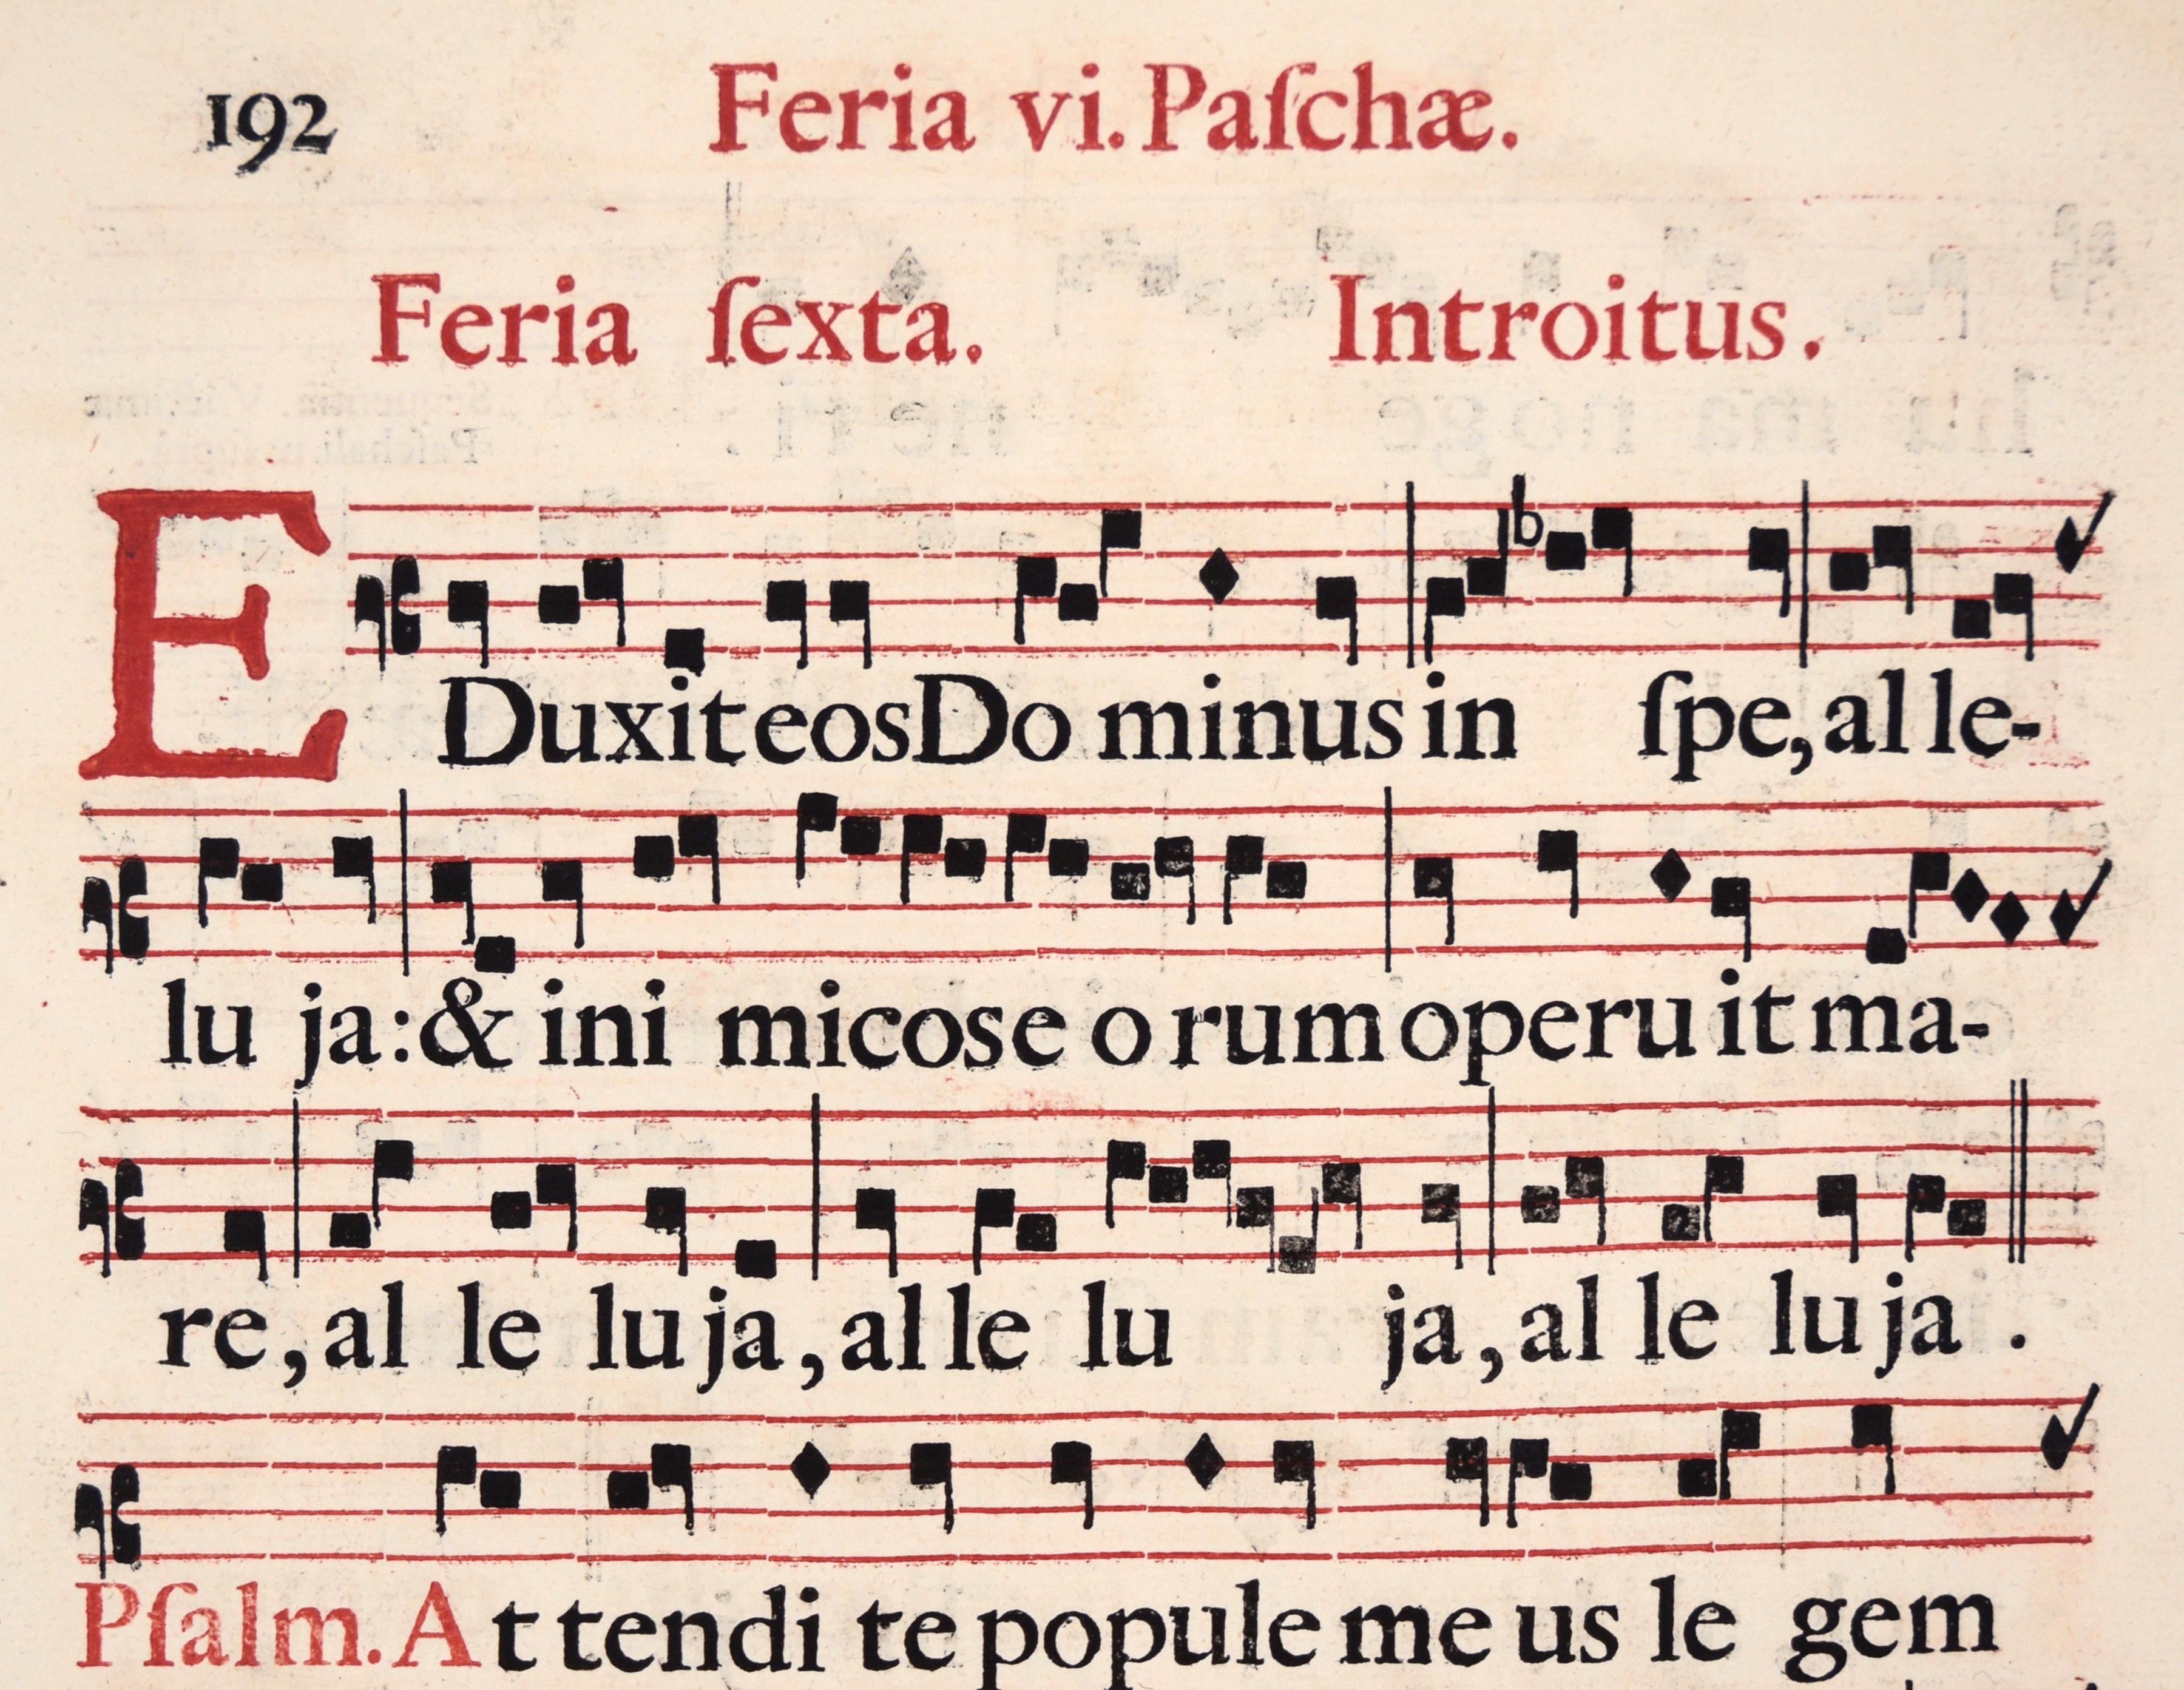 192 Feria vi. Paſchæ.
Feria ſexta. Introitus.
EDuxit eos Do minus in ſpe, al le-
lu ja: & ini micos e o rum operu it ma-
re, al le lu ja, al le lu ja, al le lu ja .
Pſalm. At tendi te popule me us le gem